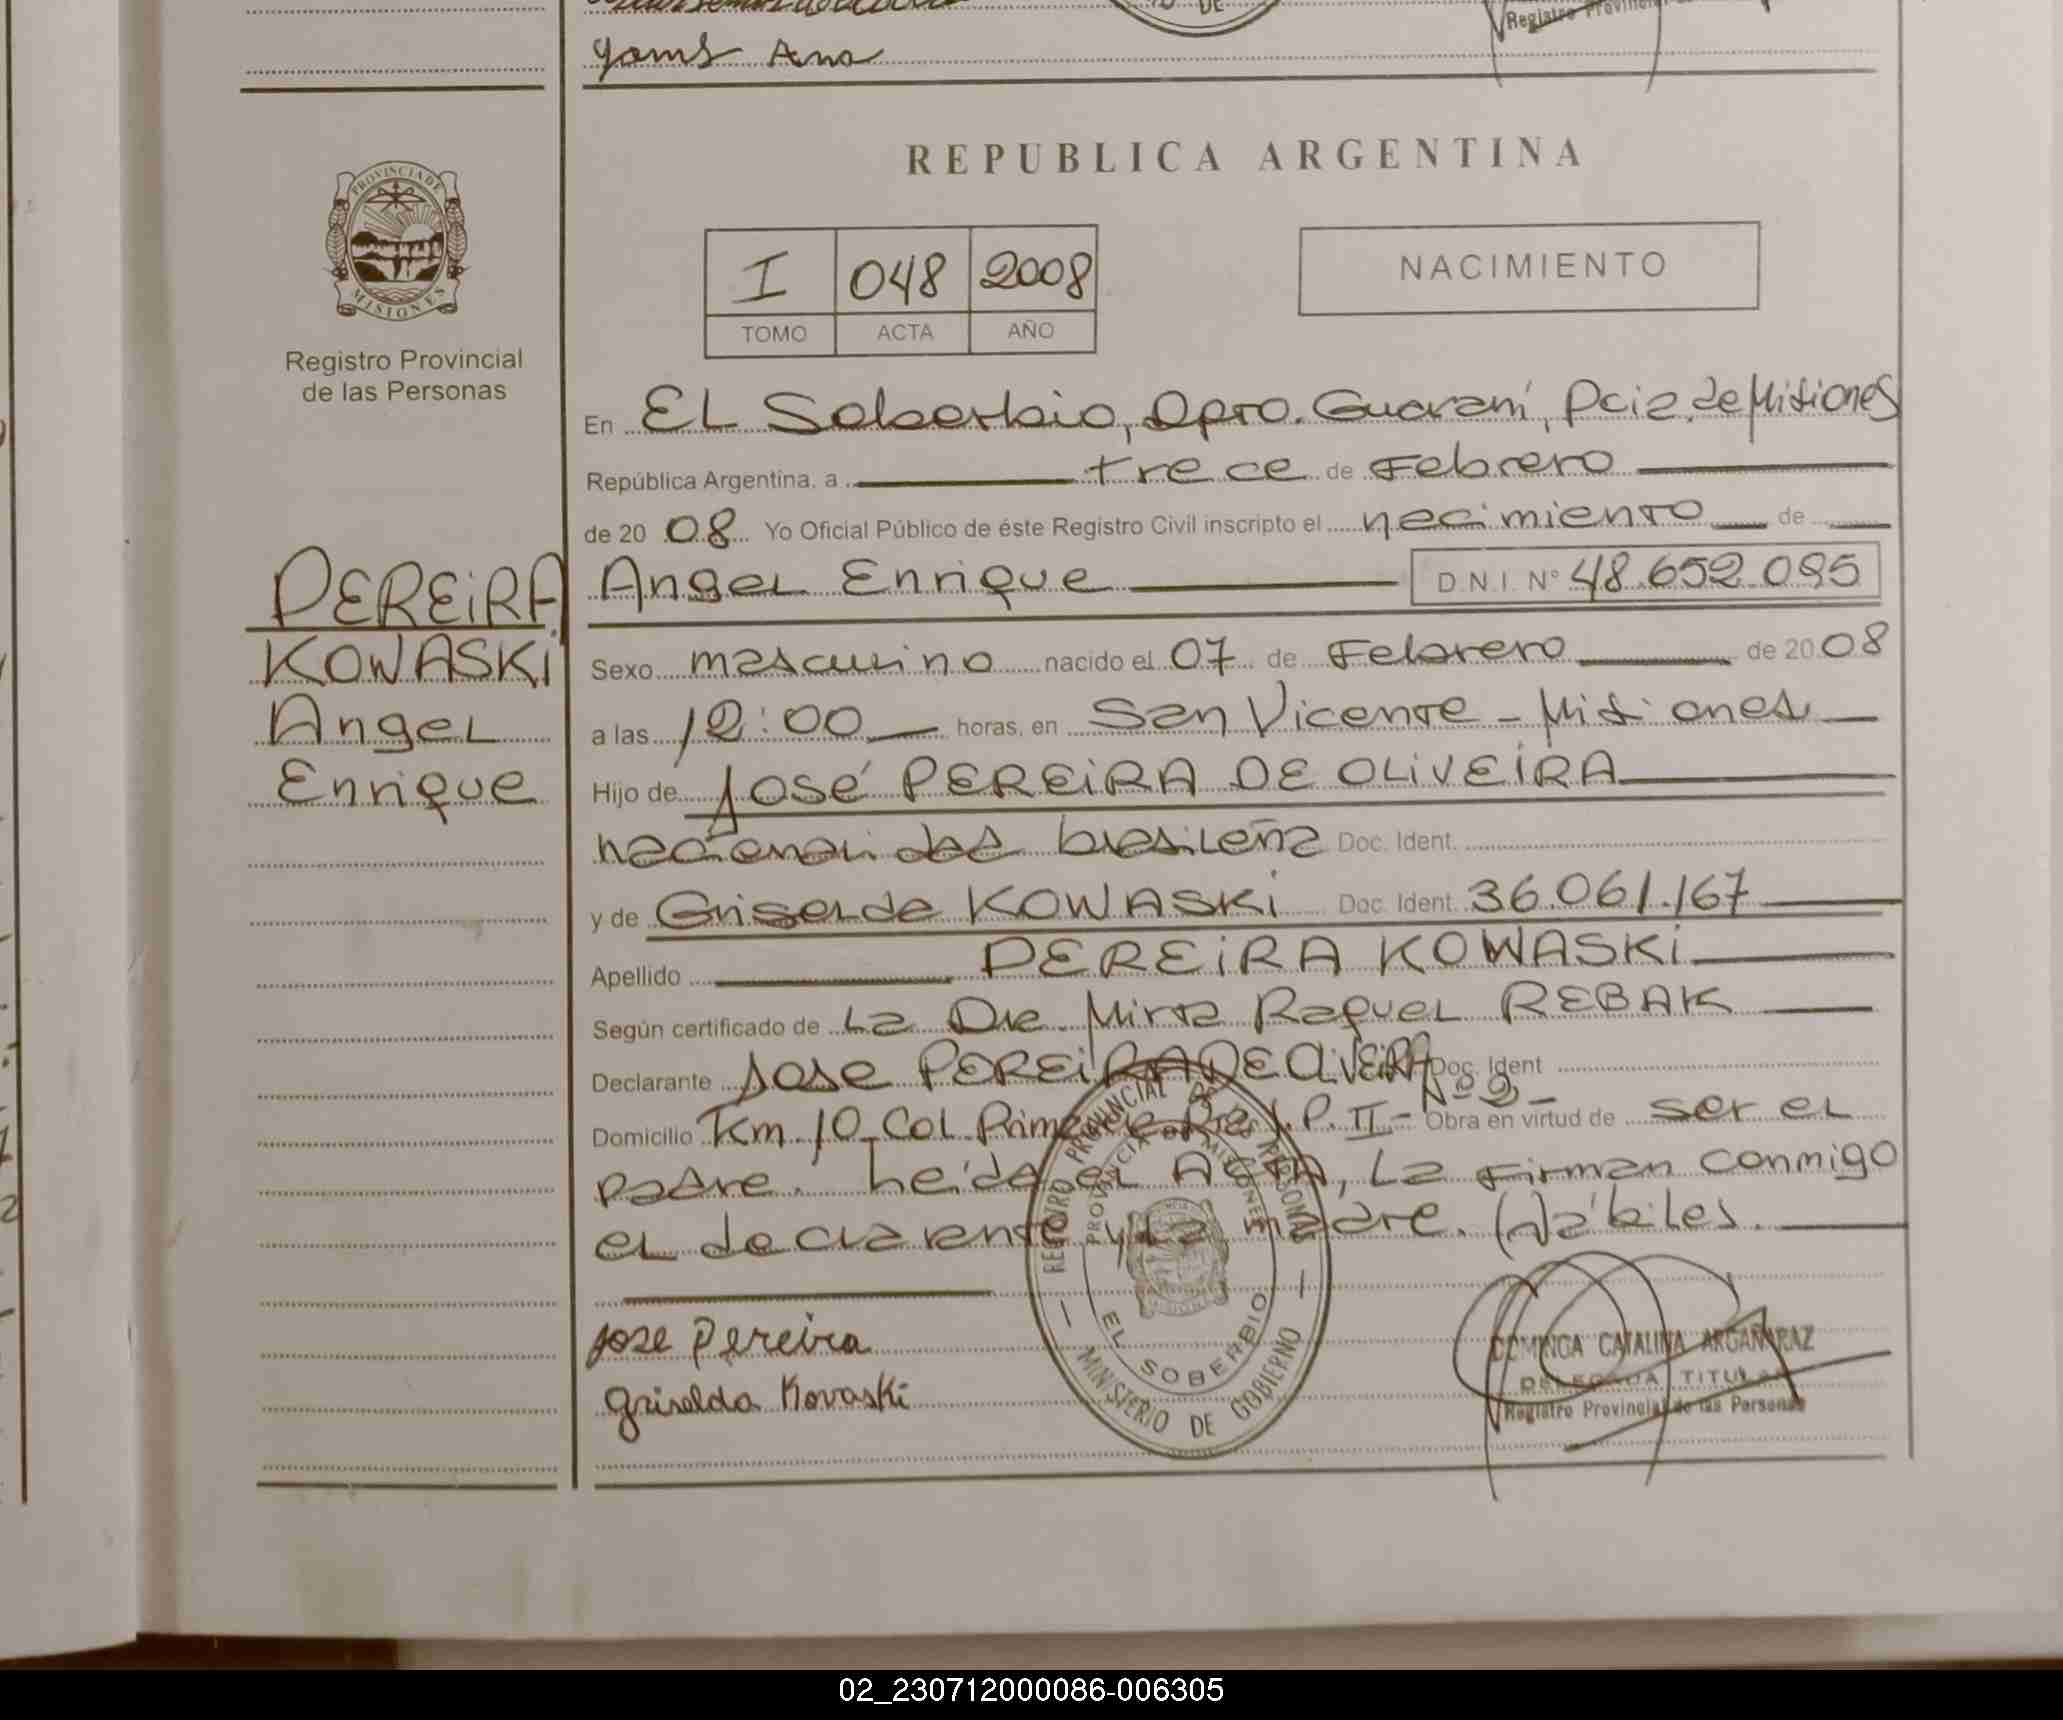 Yams Ana
Registro Provincial
REPUBLICA ARGENTINA
PROVINCIA DE
MISIONES
Registro Provincial
de las Personas
I 048 2008
TOMO ACTA AÑO
NACIMIENTO
En EL Soberbio, Dpto. Guaraní, Pcia. de Misiones
República Argentina, a trece de Febrero
de 2008 Yo Oficial Público de éste Registro Civil inscripto el nacimiento de
PEREIRA
KOWASKI
Angel
Enrique
Angel Enrique D.N.I. Nº 48.652.095
Sexo masculino nacido el 07 de Febrero de 2008
a las 12:00 horas, en San Vicente - Misiones
Hijo de José PEREIRA DE OLIVEIRA
nacionalidad brasileña Doc. Ident.
y de Griselda KOWASKI Doc. Ident. 36.061.167
Apellido PEREIRA KOWASKI
Según certificado de La Dra. Mirta Raquel REBAK
Declarante José PEREIRA DE OLIVEIRA Doc. Ident
Domicilio Km 10 Col. Primavera J.P. II - Nº 2 - Obra en virtud de ser el
padre. Leída el ACTA, La Firman conmigo
el declarante y la madre. Hábiles.
Jose Pereira
Griselda Kovaski
REGISTRO PROVINCIAL DE LAS PERSONAS
PROVINCIA DE MISIONES
EL SOBERBIO
MINISTERIO DE GOBIERNO
DOMINGA CATALINA ARGAÑARAZ
DELEGADA TITULAR
Registro Provincial de las Personas
02_230712000086-006305